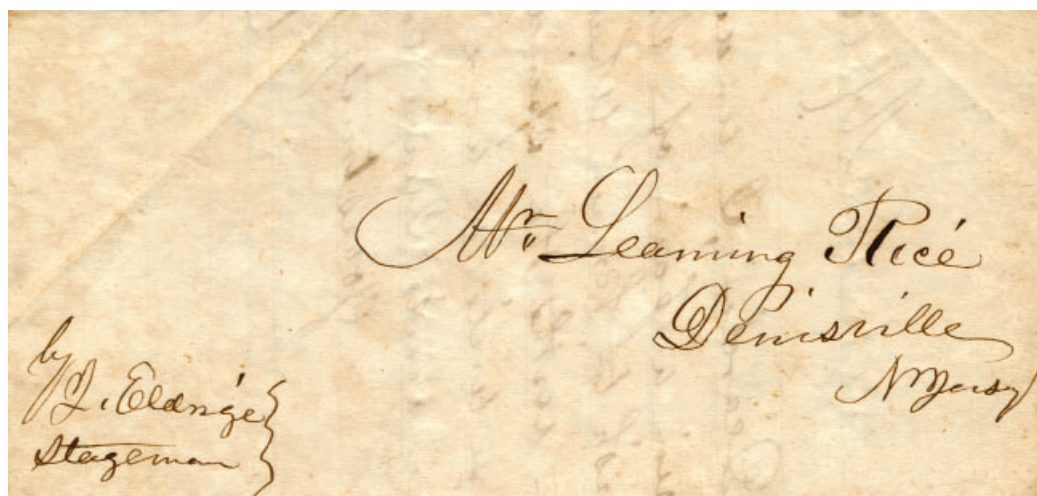 Mr. Leaming Rice
Denisville
N Jersey
by
J. Eldrige
Stageman